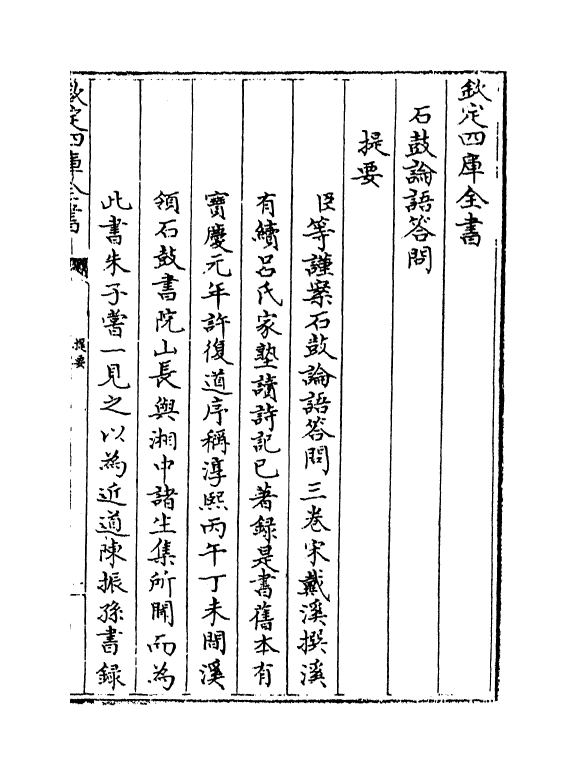 欽定四庫全書
石鼓論語答問
提要
臣等謹案石鼓論語答問三卷宋戴溪撰溪
有續呂氏家塾讀詩記已著錄是書舊本有
寶慶元年許復道序稱淳熙丙午丁未間溪
領石鼓書院山長與湘中諸生集所聞而為
此書朱子嘗一見之以為近道陳振孫書録
欽定四庫全書
提要